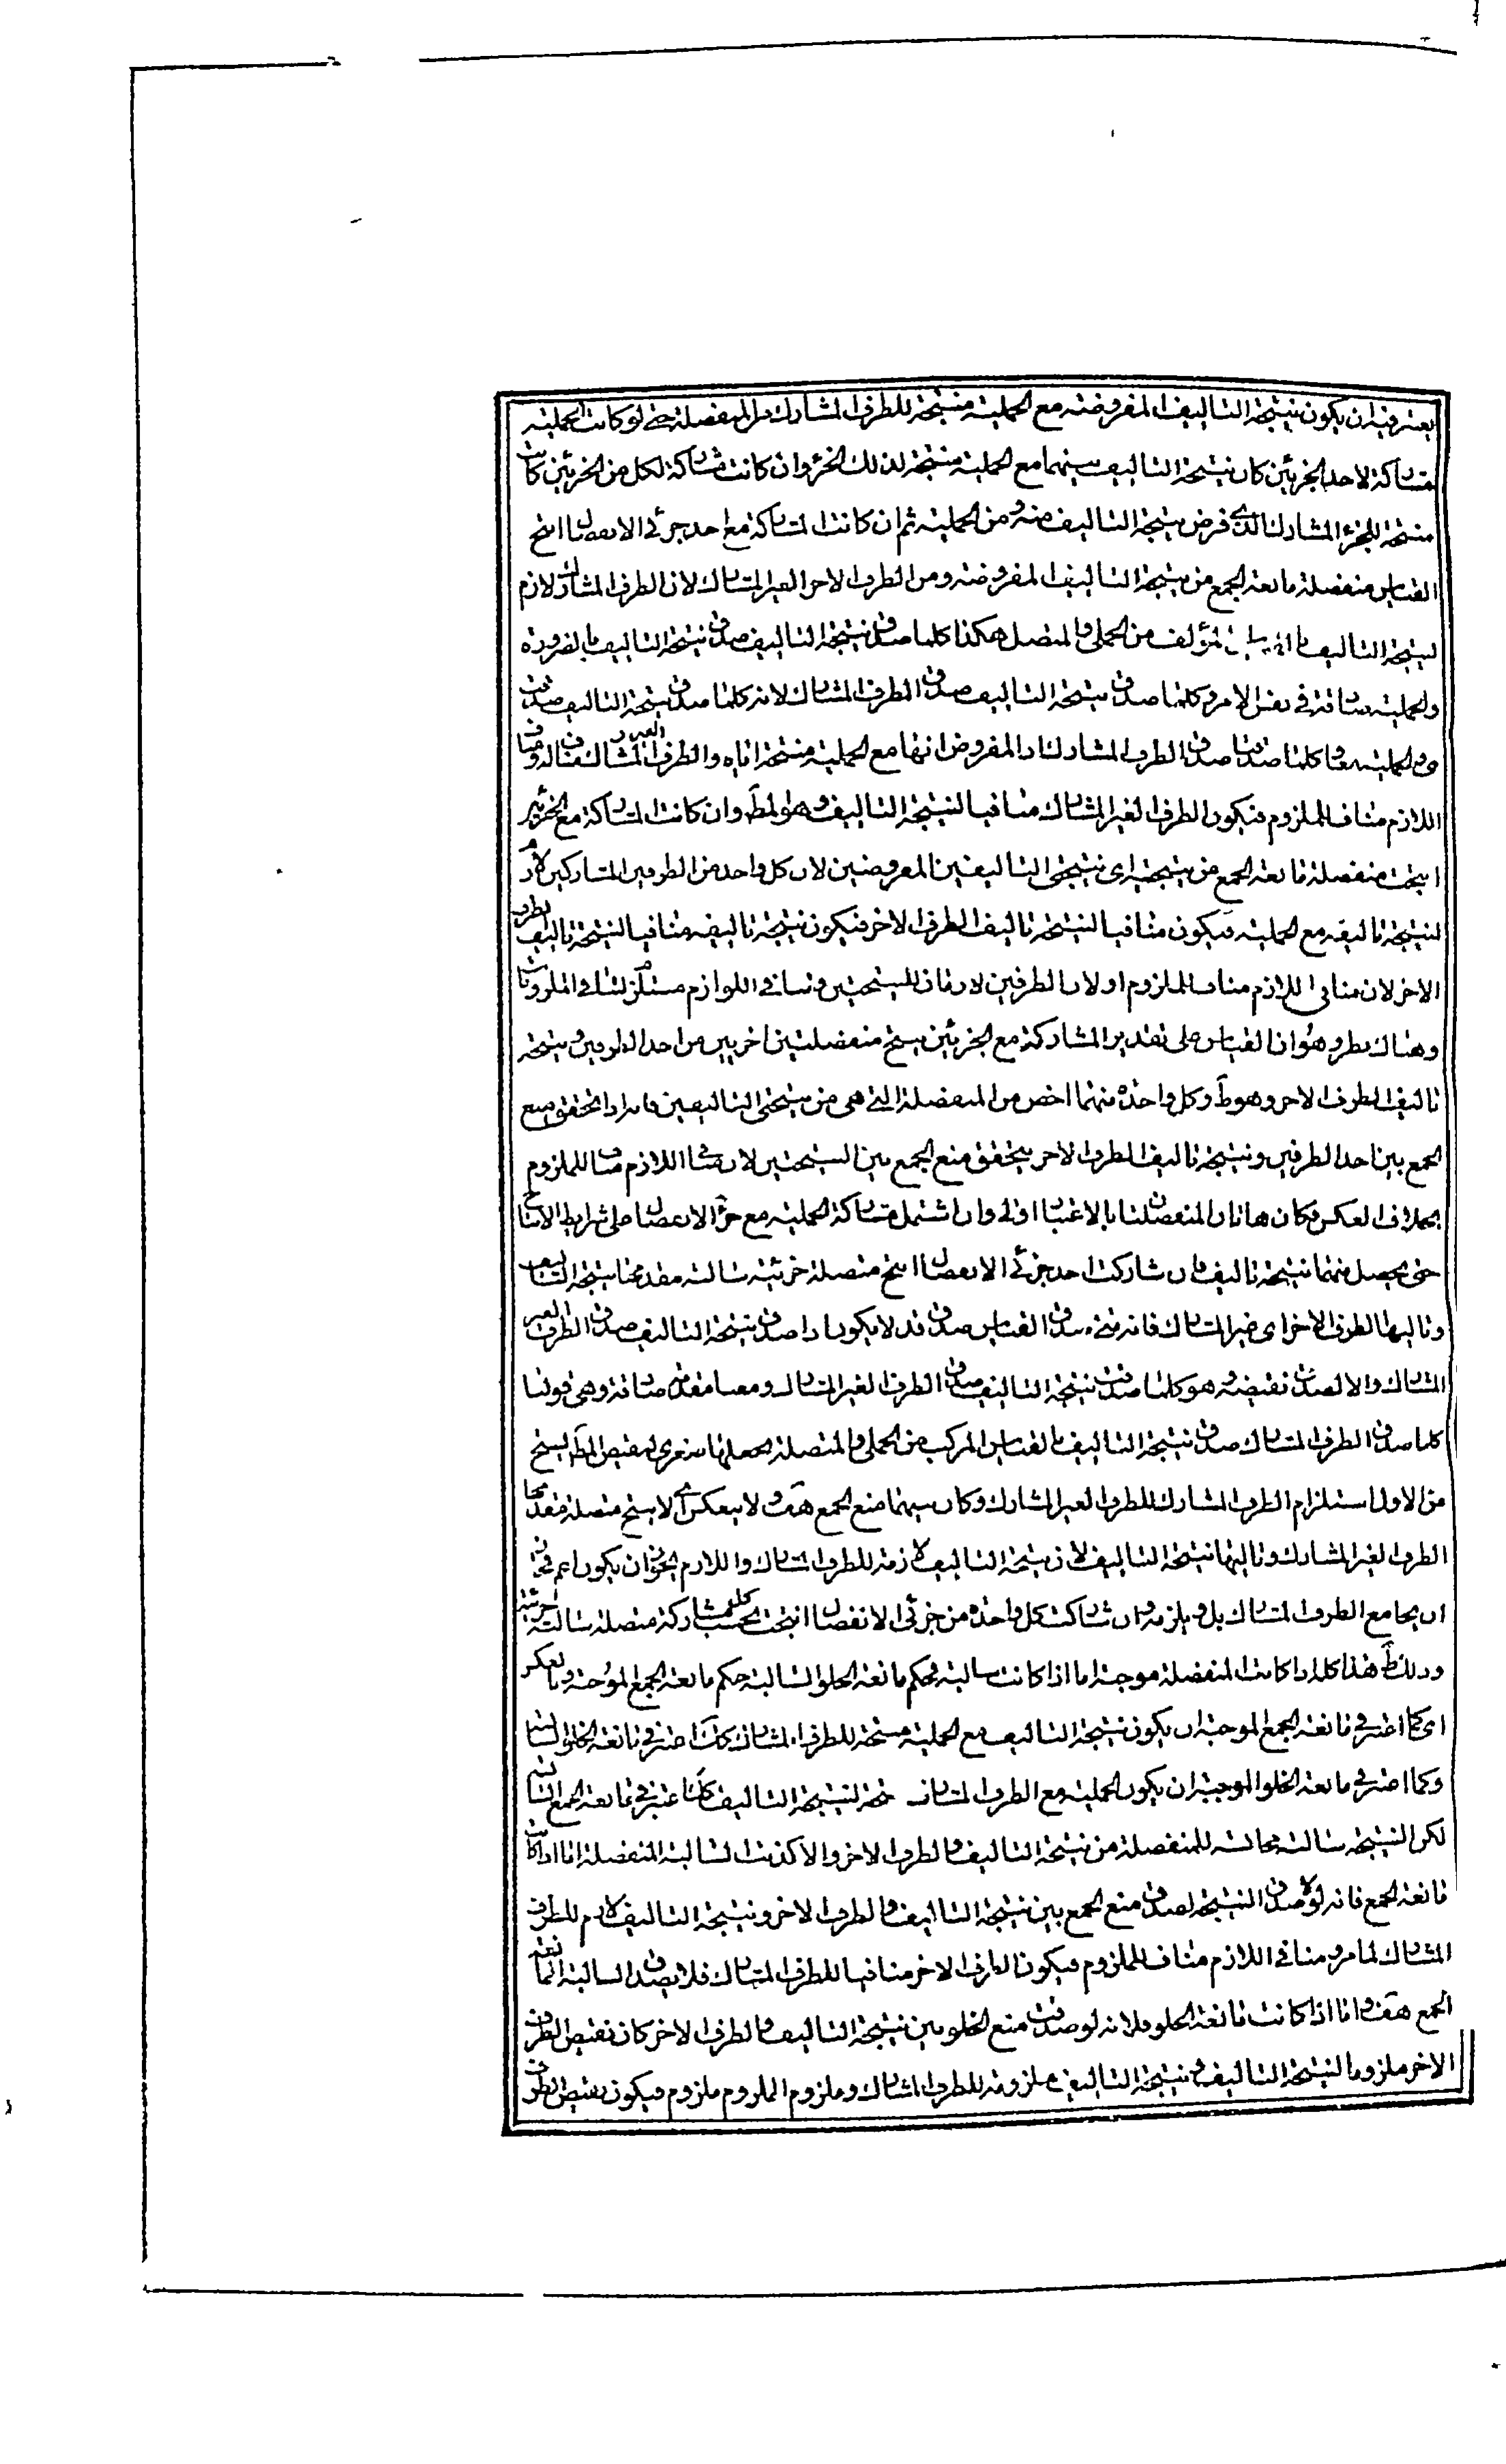 يعتبر فيه ان يكون نتيجة التاليف المفروضة مع الحملية منتجة للطرف المشارك من المنفصلة حتى لو كانت الحملية
مشاركة لاحد الجزئين كان نتيجة التاليف بينهما مع الحملية منتجة لذلك الجزء وان كانت مشاركة لكل من الجزئين كانت
منتجة للجزء المشارك الذي فرض نتيجة التاليف منه ومن الحملية ثم ان كانت المشاركة مع احد جزئى الانفصال انتج
القياس منفصلة مانعة الجمع من نتيجة التاليف المفروضة ومن الطرف الاخر الغير المشارك لان الطرف المشارك لازم
لنتيجة التاليف المؤلف من الحملى والمتصل هكذا كلما صدق نتيجة التاليف صدق نتيجة التاليف بالضرورة
والحملية صادقة في نفس الامر وكلما صدق نتيجة التاليف صدق الطرف المشارك لانه كلما صدق نتيجة التاليف صدقت
هى والحملية معا وكلما صدقتا صدق الطرف المشارك اذ المفروض انها مع الحملية منتجة اياه والطرف الغير المشارك مناف له ومنافى
اللازم مناف للملزوم فيكون الطرف الغير المشارك منافيا لنتيجة التاليف وهو المط وان كانت المشاركة مع الجزئين
انتجت منفصلة مانعة الجمع من نتيجتيه اى نتيجتى التاليفين المفروضين لان كل واحد من الطرفين المتشاركين لازم
لنتيجة تاليفه مع الحملية فيكون منافيا لنتيجة تاليف الطرف الاخر فيكون نتيجة تاليفه منافيا لنتيجة تاليف الطرف
الاخر لان منافى اللازم مناف للملزوم او لان الطرفين لازمان للنتيجتين وتنافى اللوازم مستلزم لتنافى الملزومات
وهناك نظر وهو ان القياس على تقدير المشاركة مع الجزئين ينتج منفصلتين اخريين من احد الطرفين ونتيجة
تاليف الطرف الاخر وهو ظ وكل واحدة منهما اخص من المنفصلة التى هى من نتيجتى التاليفين فانه اذا تحقق منع
الجمع بين احد الطرفين ونتيجة تاليف الطرف الاخر يتحقق منع الجمع بين النتيجتين لان منافى اللازم مناف للملزوم
بخلاف العكس فكان هاتان المنفصلتان بالاعتبار اولى وان اشتمل مشاركة الحملية مع جزء الانفصال على شرايط الانتاج
حتى يحصل منهما نتيجة تاليف فان شاركت احد جزئى الانفصال انتج متصلة جزئية سالبة مقدمها نتيجة التاليف
وتاليها الطرف الاخر اى غير المشارك فانه متى صدق القياس صدق قد لا يكون اذا صدق نتيجة التاليف صدق الطرف الغير
المشارك والا لصدق نقيضه وهو كلما صدقت نتيجة التاليف صدق الطرف الغير المشارك ومعنا مقدمة صادقة وهى قولنا
كلما صدق الطرف المشارك صدق نتيجة التاليف بالقياس المركب من الحملى والمتصلة نجعلها صغرى لنقيض المط لينتج
من الاول استلزام الطرف المشارك للطرف الغير المشارك وكان بينهما منع الجمع هف ولا ينعكس اى لا ينتج متصلة مقدمها
الطرف الغير المشارك وتاليها نتيجة التاليف لان نتيجة التاليف لازمة للطرف المشارك واللازم يجوز ان يكون اعم فجاز
ان يجامع الطرف المشارك بل ويلزمه وان شاركت كل واحدة من جزئى الانفصال انتجت بحسب كل مشاركة متصلة سالبة جزئية
وذلك ظ هذا كله اذا كانت المنفصلة موجبة اما اذا كانت سالبة فحكم مانعة الخلو السالبة حكم مانعة الجمع الموجبة وبالعكس
اى كما اعتبر في مانعة الجمع الموجبة ان يكون نتيجة التاليف مع الحملية منتجة للطرف المشارك كك اعتبر في مانعة الخلو السالبة
وكما اعتبر في مانعة الخلو الموجبة ان يكون الحملية مع الطرف المشارك منتجة لنتيجة التاليف كك اعتبر في مانعة الجمع السالبة
لكن النتيجة سالبة مجانسة للمنفصلة من نتيجة التاليف والطرف الاخر والا كذبت السالبة المنفصلة اما اذا كانت
مانعة الجمع فانه لو لا صدق النتيجة لصدق منع الجمع بين نتيجة التاليف والطرف الاخر ونتيجة التاليف لازم للطرف
المشارك لما مر ومنافى اللازم مناف للملزوم فيكون الطرف الاخر منافيا للطرف المشارك فلا يصدق السالبة المانعة
الجمع هف واما اذا كانت مانعة الخلو فلانه لو صدقت منع الخلو بين نتيجة التاليف والطرف الاخر كان نقيض الطرف
الاخر ملزوما لنتيجة التاليف ونتيجة التاليف ملزومة للطرف المشارك وملزوم الملزوم ملزوم فيكون نقيض الطرف